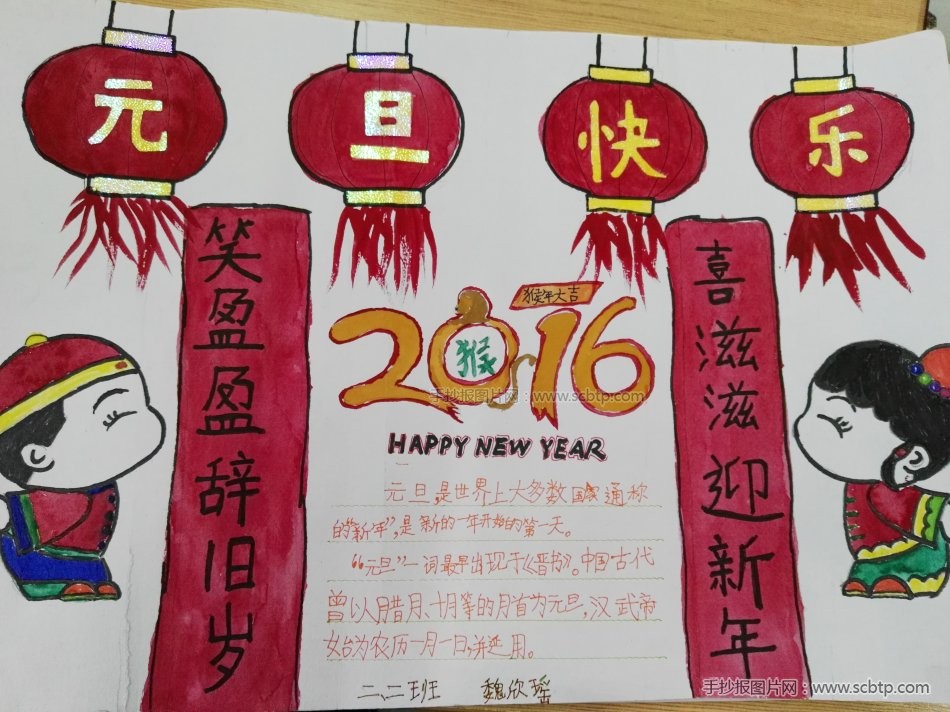 元旦快乐
笑盈盈辞旧岁
猴年大吉
2016
猴
手抄报图片网：www.scbtp.com
HAPPY NEW YEAR
元旦是世界上大多数国家通称
的“新年”，是新的一年开始的第一天。
“元旦”一词最早出现于《晋书》。中国古代
曾以腊月、十月等的月首为元旦，汉武帝
始为农历一月一日，并延用。
二、二班 魏欣瑶
喜滋滋迎新年
手抄报图片网：www.scbtp.com